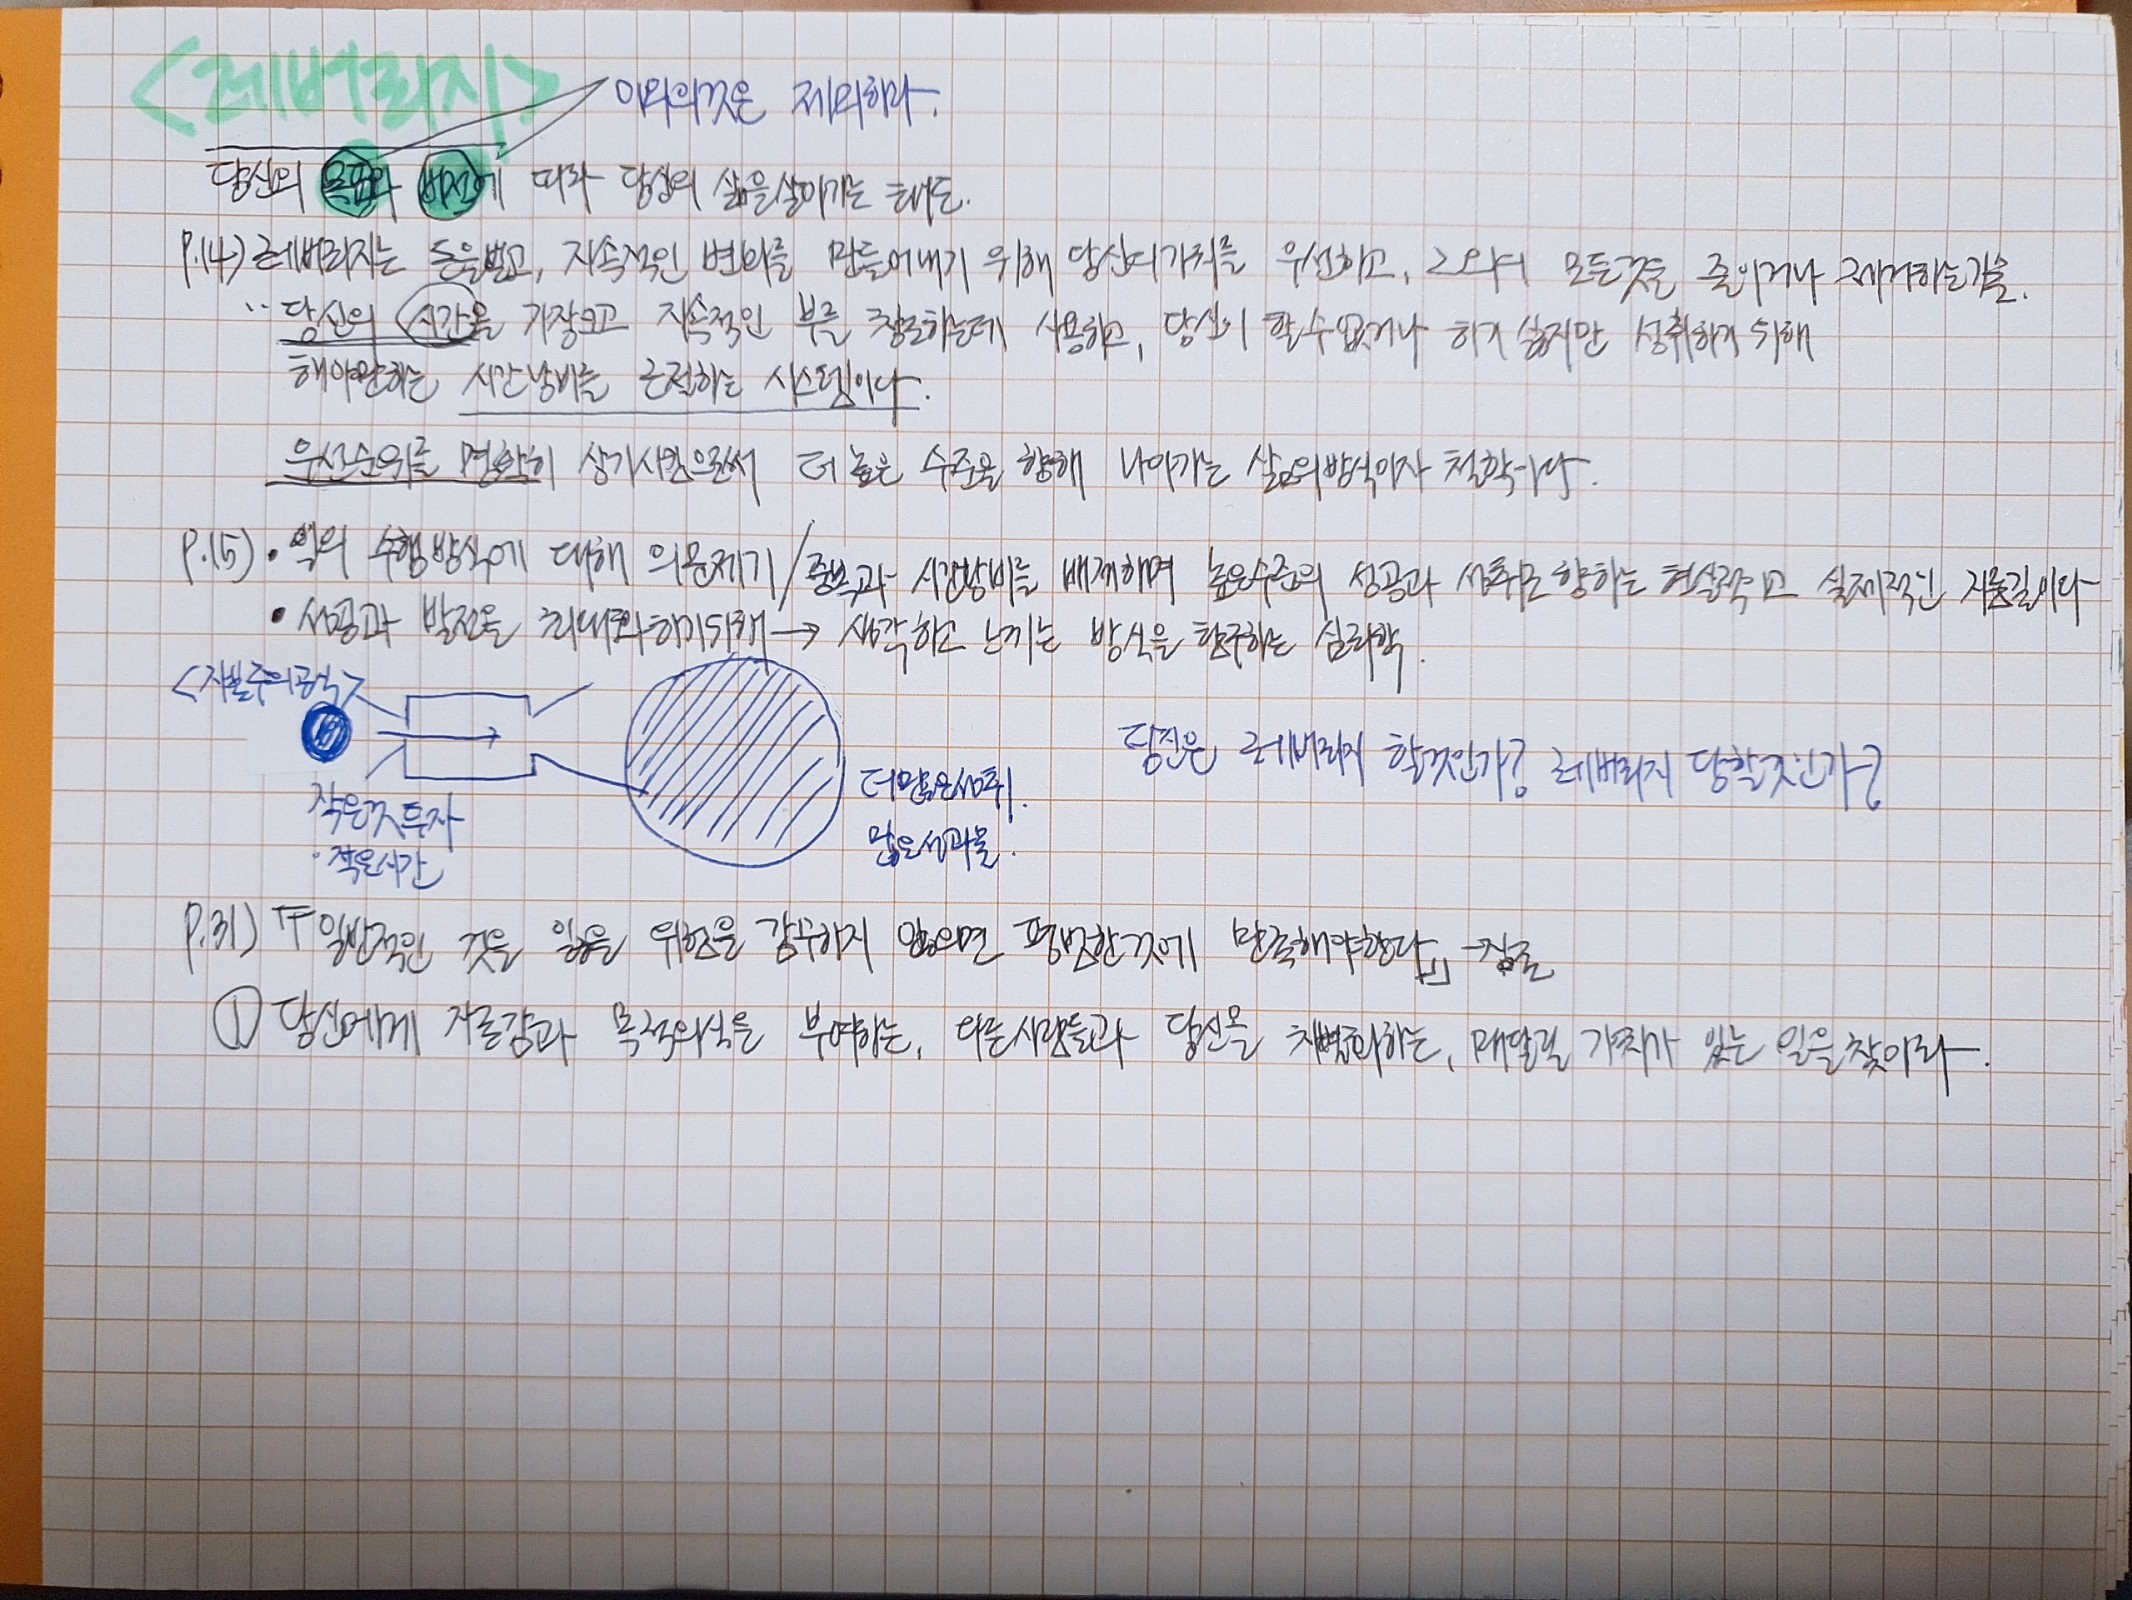 <레버리지>
이외의것은 제외하라.
당신의 목표와 비전에 따라 당신의 삶을살아가는 태도.
P.14) 레버리지는 돈을벌고, 지속적인 변화를 만들어내기 위해 당신의가치를 우선하고, 그외의 모든것을 줄이거나 제거하는기술.
당신의 시간을 가장크고 지속적인 부를 창조하는데 사용하고, 당신이 할수없거나 하기 싫지만 성취하기 위해
해야만하는 시간낭비를 근절하는 시스템이다.
우선순위를 명확히 상기시킴으로써 더 높은 수준을 향해 나아가는 삶의방식이자 철학이다.
P.15) • 일의 수행방식에 대해 의문제기 / 중복과 시간낭비를 배제하며 높은수준의 성공과 성취로 향하는 현실적이고 실제적인 지름길이다
• 성공과 발전을 최대화하기위해 → 생각하고 느끼는 방식을 탐구하는 심리학.
<자본주의공식>
작은것투자
· 적은시간
더많은성취.
많은성과물.
당신은 레버리지 할것인가? 레버리지 당할것인가?
P.31) 「일반적인 것을 잃을 위험을 감수하지 않으면 평범한것에 만족해야한다」 -짐론
① 당신에게 자존감과 목적의식을 부여하는, 다른사람들과 당신을 차별화하는, 매달릴 가치가 있는 일을찾아라.